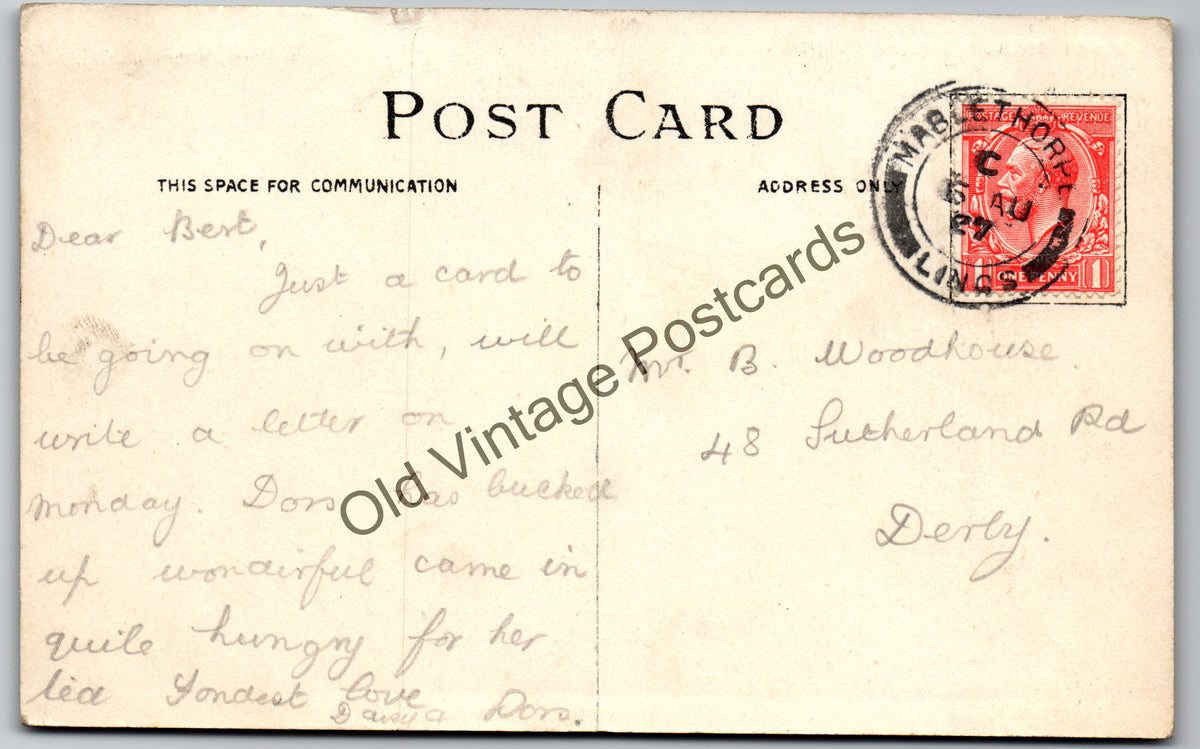 POST CARD
THIS SPACE FOR COMMUNICATION
ADDRESS ONLY
MABLETHORPE
C
AU
27
LINCS
POSTAGE REVENUE
1 ONE PENNY 1
Dear Bert,
Just a card to
be going on with, will
write a letter on
Monday. Dors has bucked
up wonderful came in
quite hungry for her
tea Fondest love
Daisy & Dors.
Mr. B. Woodhouse
48 Sutherland Rd
Derby.
Old Vintage Postcards